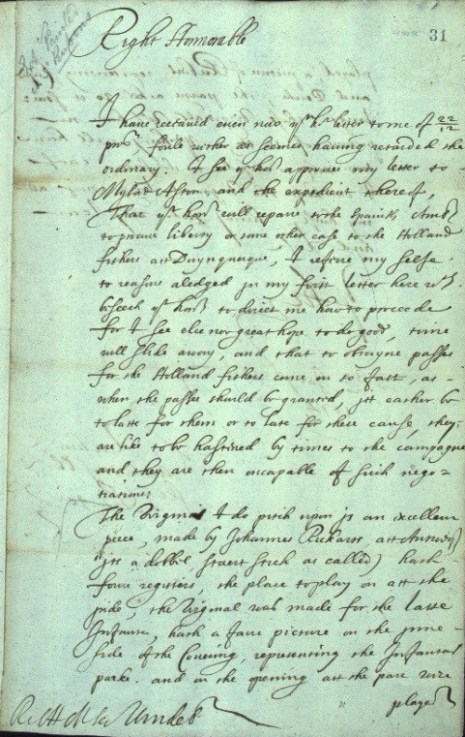 31
Right Honorable
I have receaued euen now yr hors letter to me of 22/12
foule wether as seemes hauing retarded the
ordinary. I see yr honr approues my letter to
Mylord Aston, and the expedient thereof,
That yr honr will repaire to the Spanish Ambr
to procure liberty or some other case to the Holland
fishers att Duynquerque, I referre my selfe
to reasons aledged in my first letter here wth
beseech yr honr to direct me how to proceede
for I see else nor great hope to do good, time
will slide away, and that to obtayne passes
for the Holland fishers come on so fast, as
when the passes should be granted, itt eather be
to late for them or to late for there cause, they
are like to be hastined by times to the campagne
and they are then incapable of such nego-
tiations
The Virginal I do pitch upon is an excellent
peece, made by Johannes Rickarts att Antwerp
itts a dobbel staert stick as called) hath
foure registers, the place to play on att the
jnde, the Virginal was made for the latte
Infanta, hath a faire picture on the inne-
side of the Couering, representing the Infantas
parke. and on the opening att the part were
played